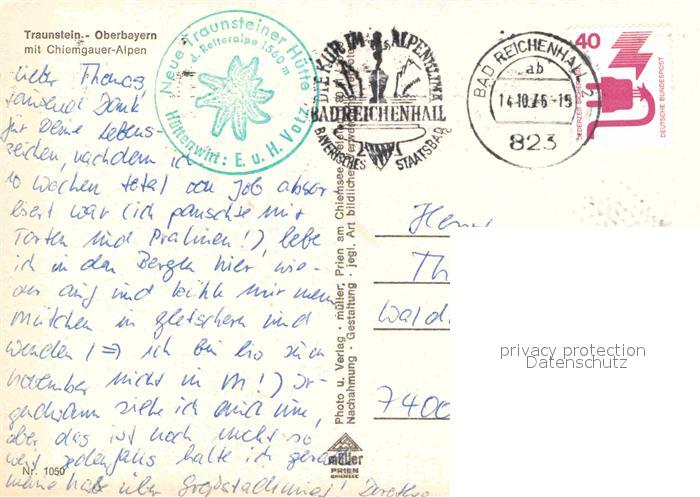 Traunstein - Oberbayern
mit Chiemgauer-Alpen
Neue Traunsteiner Hütte
a. d. Reiteralpe 1560 m
Hüttenwirt: E. u. H. Votz
DIE KUR IM ALPENKLIMA
BAD REICHENHALL
BAYERISCHES STAATSBAD
BAD REICHENHALL 2
ab
14.10.76-15
823
40
JEDERZEIT SICHERHEIT
DEUTSCHE BUNDESPOST
Lieber Thomas
tausend Dank
für Deine Lebens-
zeichen, nachdem ich
10 Wochen total vom Job absor-
biert war (ich pansche mit
Torten und Pralinen!) lebe
ich in den Bergen hier wie-
der auf und kühle mir mein
Mütchen in Gletschern und
Wänden (⇒ ich bin bis zum
November nicht in M!) Ir-
gendwann ziehe ich mal um,
aber das ist noch nicht so
weit jedenfalls halte ich
meine Nase über Großstadtmief! Dorothea
Herrn
Th
Wald
7400
Photo u. Verlag · müller, Prien am Chiemsee
Nachahmung · Gestaltung · jegl. Art bildlicher
müller
PRIEN
CHIEMSEE
Nr. 1050
privacy protection
Datenschutz